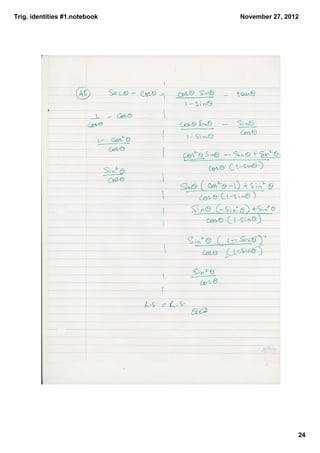 Trig. identities #1.notebook November 27, 2012
45 secθ - cosθ = cosθ sinθ / 1-sinθ - tanθ
1/cosθ - cosθ | cosθ sinθ / 1-sinθ - sinθ/cosθ
1-cos²θ / cosθ | cos²θ sinθ - sinθ + sin²θ / cosθ (1-sinθ)
sin²θ / cosθ | sinθ (cos²θ-1) + sin²θ / cosθ (1-sinθ)
sinθ (-sin²θ) + sin²θ / cosθ (1-sinθ)
sin²θ (1-sinθ) / cosθ (1-sinθ)
sin²θ / cosθ
L.S. = R.S.
QED
24